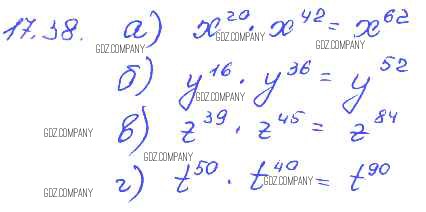 17.38. а) x^20 · x^42 = x^62
GDZ.COMPANY GDZ.COMPANY GDZ.COMPANY
б) y^16 · y^36 = y^52
GDZ.COMPANY
в) z^39 · z^45 = z^84
GDZ.COMPANY
GDZ.COMPANY
г) t^50 · t^40 = t^90
GDZ.COMPANY GDZ.COMPANY